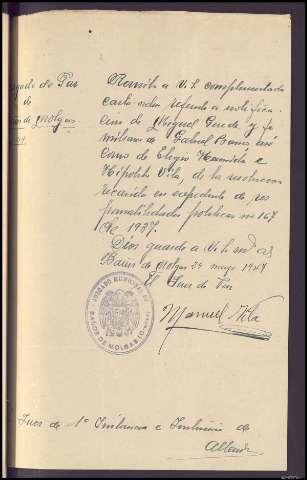 Juzgado de Paz
de
Baños de Molgas
Remito a V.S. complimentada
carta orden referente a notifica-
cion de Miguel Cerede y fa-
miliares de Gabriel Bouso asi
como de Eligio Hermida e
Hipolito Vila, de la resolucion
recaida en expediente de res
ponsabilidades politicas nº 167
de 1937.
Dios guarde a V.S. ms. as.
Baños de Molgas 24 mayo 1947
El Juez de Paz
Manuel Vila
JUZGADO MUNICIPAL DE
BAÑOS DE MOLGAS (Orense)
Juez de 1ª Instancia e Instruccion de
Allariz